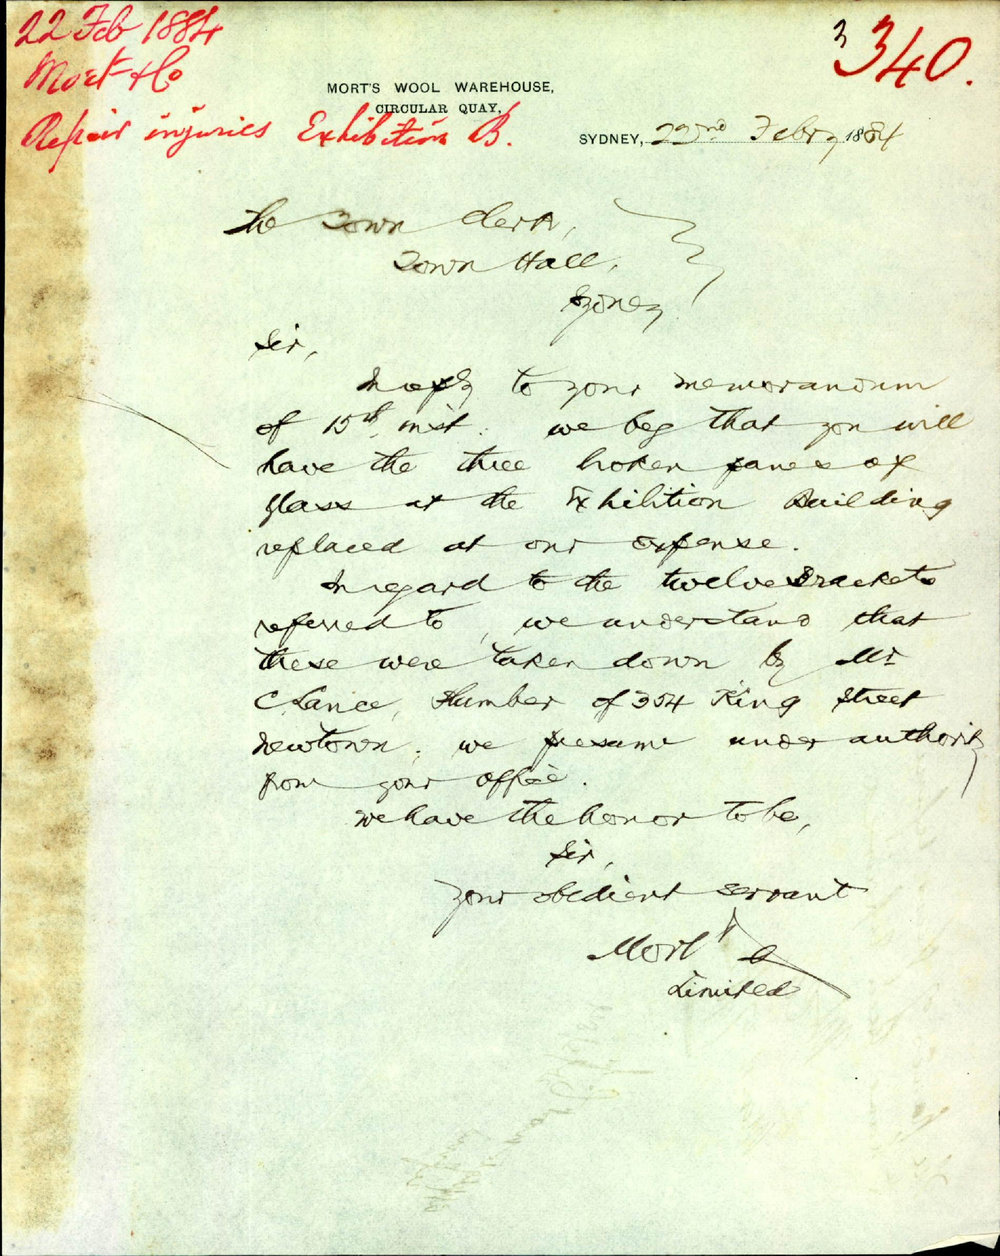 22 Feb 1884
Mort & Co
Repair injuries Exhibition B.
3340.
MORT'S WOOL WAREHOUSE,
CIRCULAR QUAY,
SYDNEY, 22nd Febry 1884
The Town Clerk,
Town Hall,
Sydney
Sir,
In reply to your memorandum
of 15th inst. we beg that you will
have the three broken panes of
glass at the Exhibition Building
replaced at our expense.
In regard to the twelve Brackets
referred to, we understand that
these were taken down by Mr
Lance, Plumber of 304 King Street
Newtown, we presume under authority
from your office.
We have the honor to be,
Sir,
Your obedient servant
Mort & Co
Limited